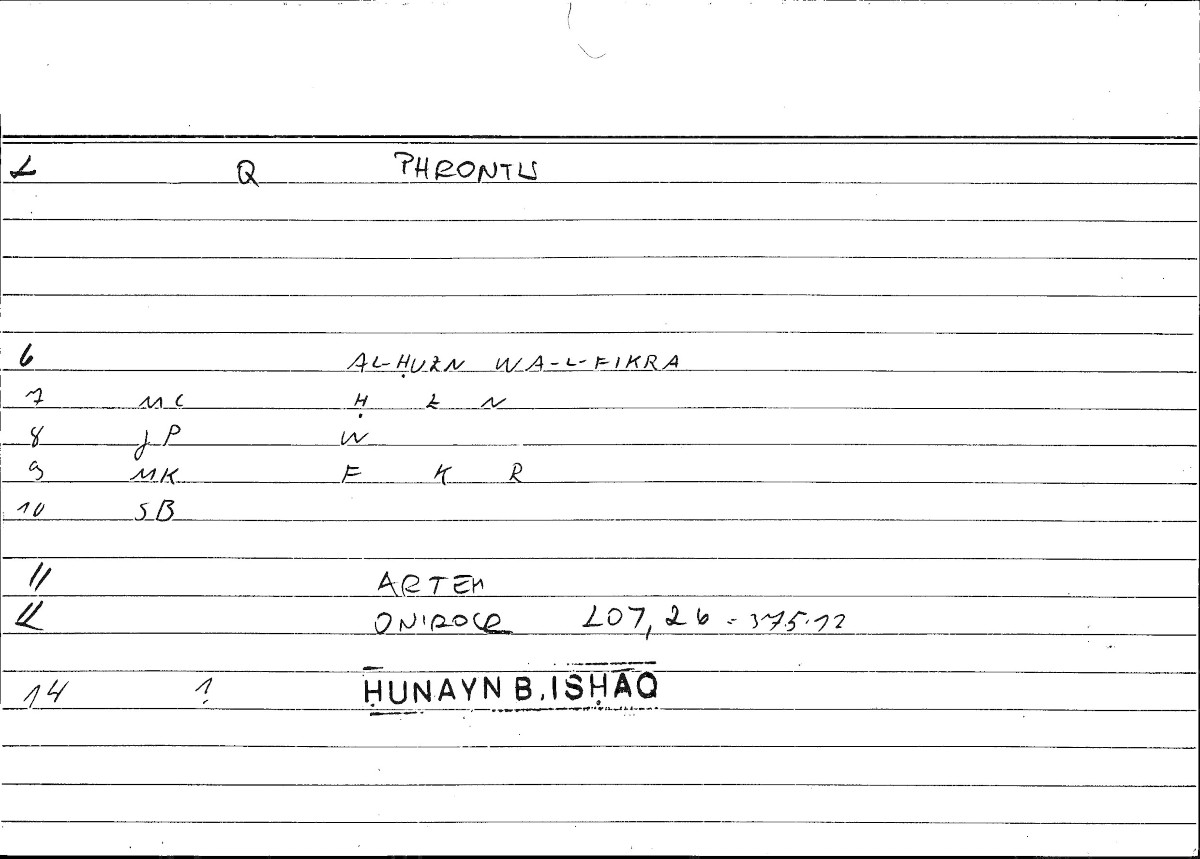 2 Q PHRONTIS
6 AL-ḤUZN WA-L-FIKRA
7 MC Ḥ Z N
8 JP W
9 MK F K R
10 SB
11 ARTEM
12 ONIROCR 207,26 - 375.12
14 1 ḤUNAYN B. ISḤĀQ